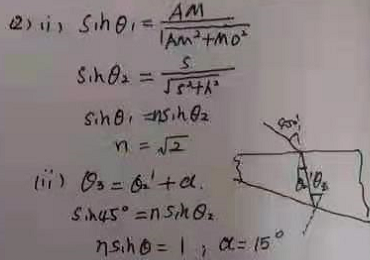 (2) (i) sinθ₁ = AM/√(AM²+MO²)
sinθ₂ = s/√(s²+h²)
sinθ₁ = nsinθ₂
n = √2
(ii) θ₃ = θ₂' + α.
sin45° = nsinθ₂
nsinθ = 1 ; α = 15°
θ₂' θ₃